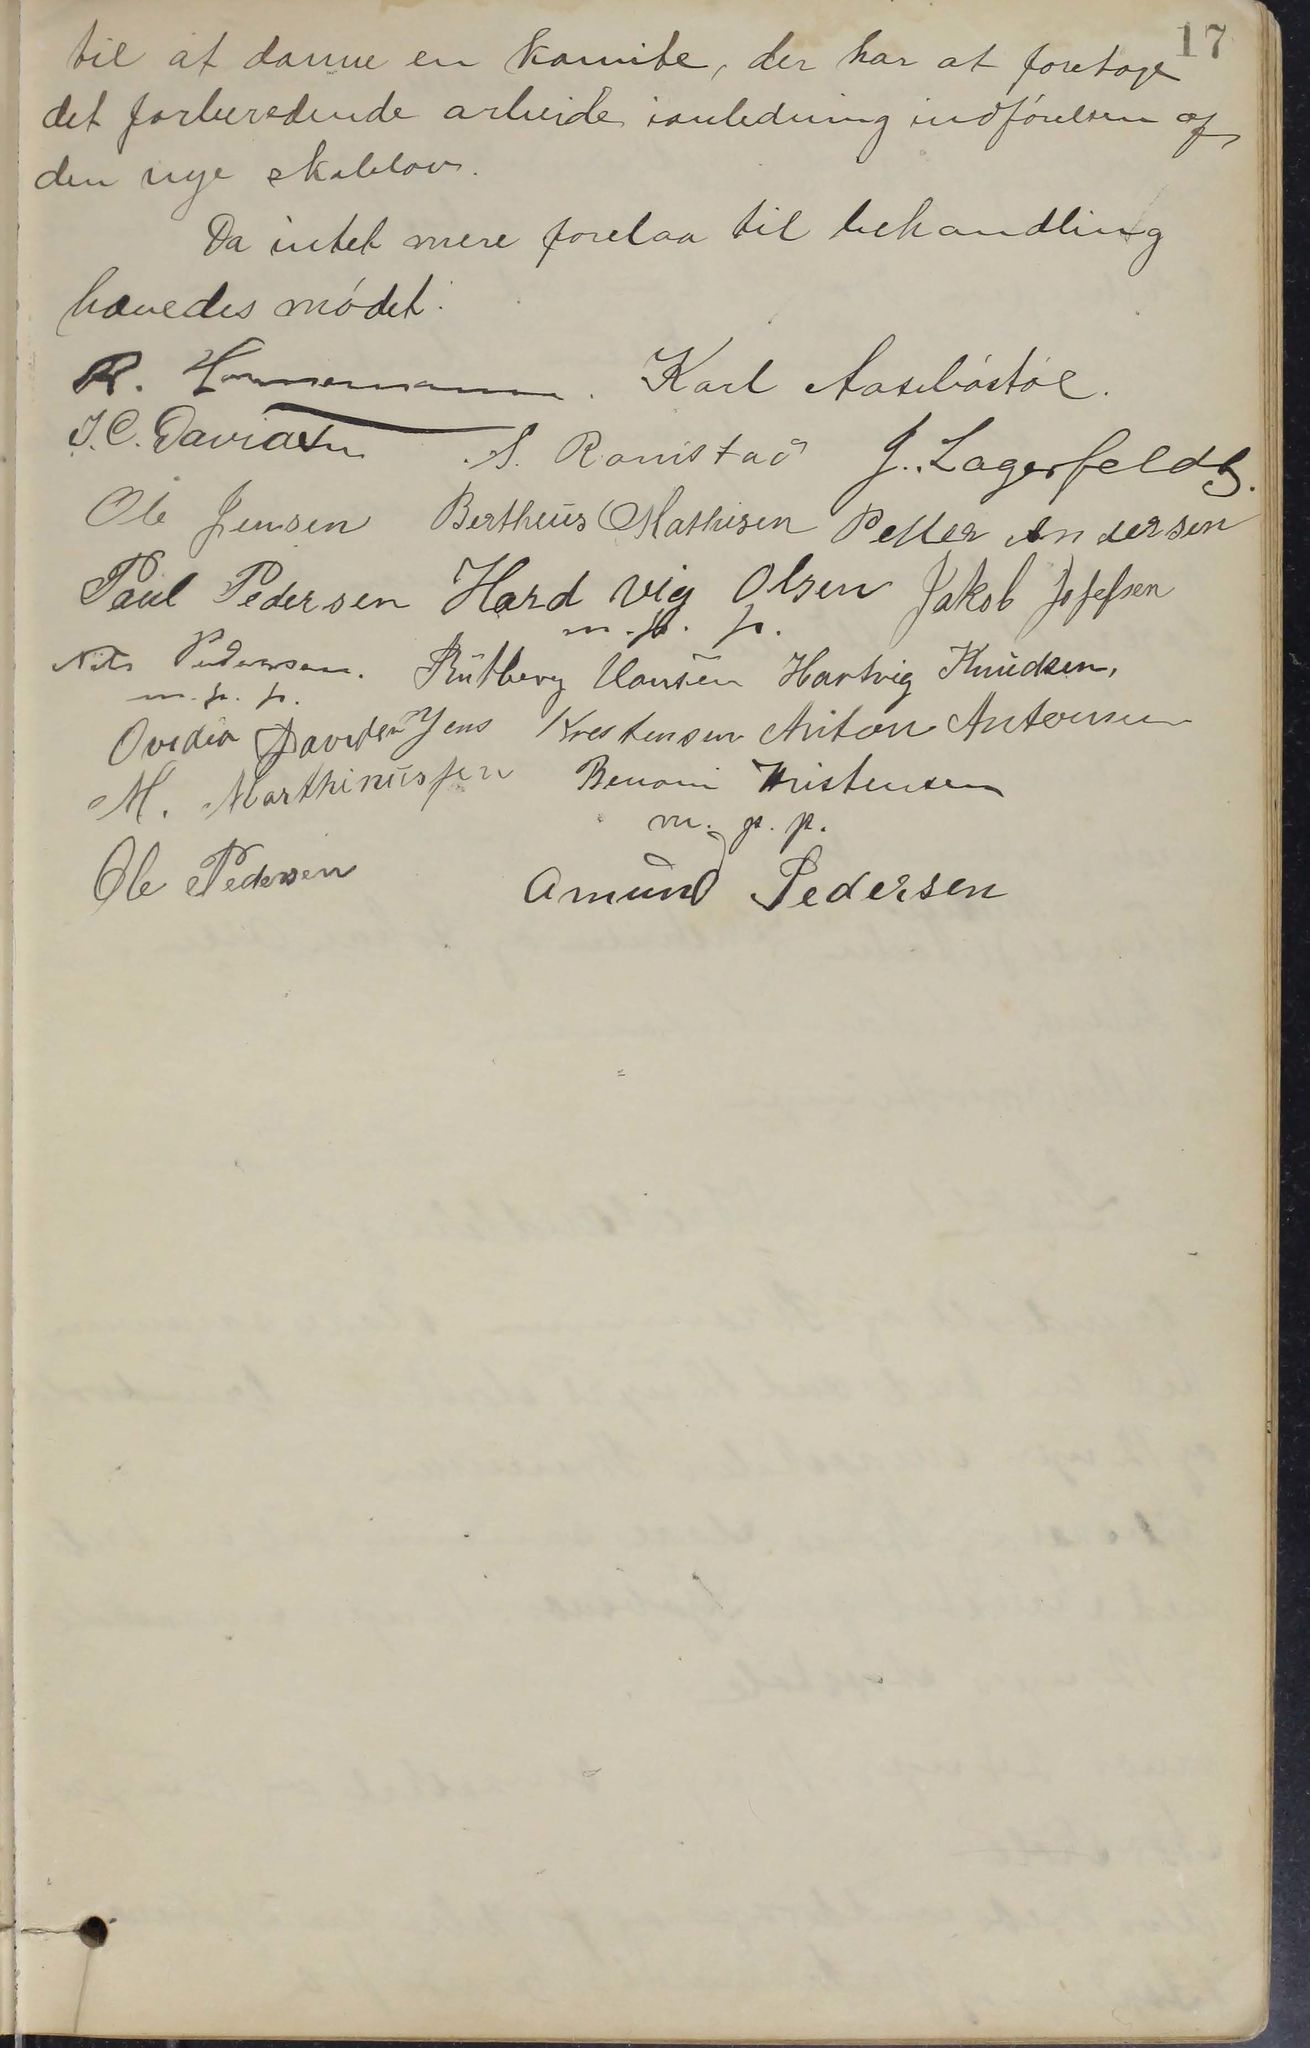 17
til at danne en komite, der har at foretage
det forberedende arbeide ianledning indførelsen af
den nye skattelov.
Da intet mere forelaa til behandling
hævedes mødet.
R. Karl Aasebøstøl.
J. C. Davidsen S. Ramstad J. Lagerfeldt.
Ole Jensen Bertheüs Mathisen Petter Andersen
Paul Pedersen Hard vig Olsen Jakob Josefsen
m. p. p.
Nils Pedersen. Hansen Hartvig Knudsen,
m. p. p.
Ovedia Davidsen Jens Krestensen Anton Antonsen
M. Marthinüssen Benoni Kristensen
m. p. p.
Ole Pedersen Amund Pedersen